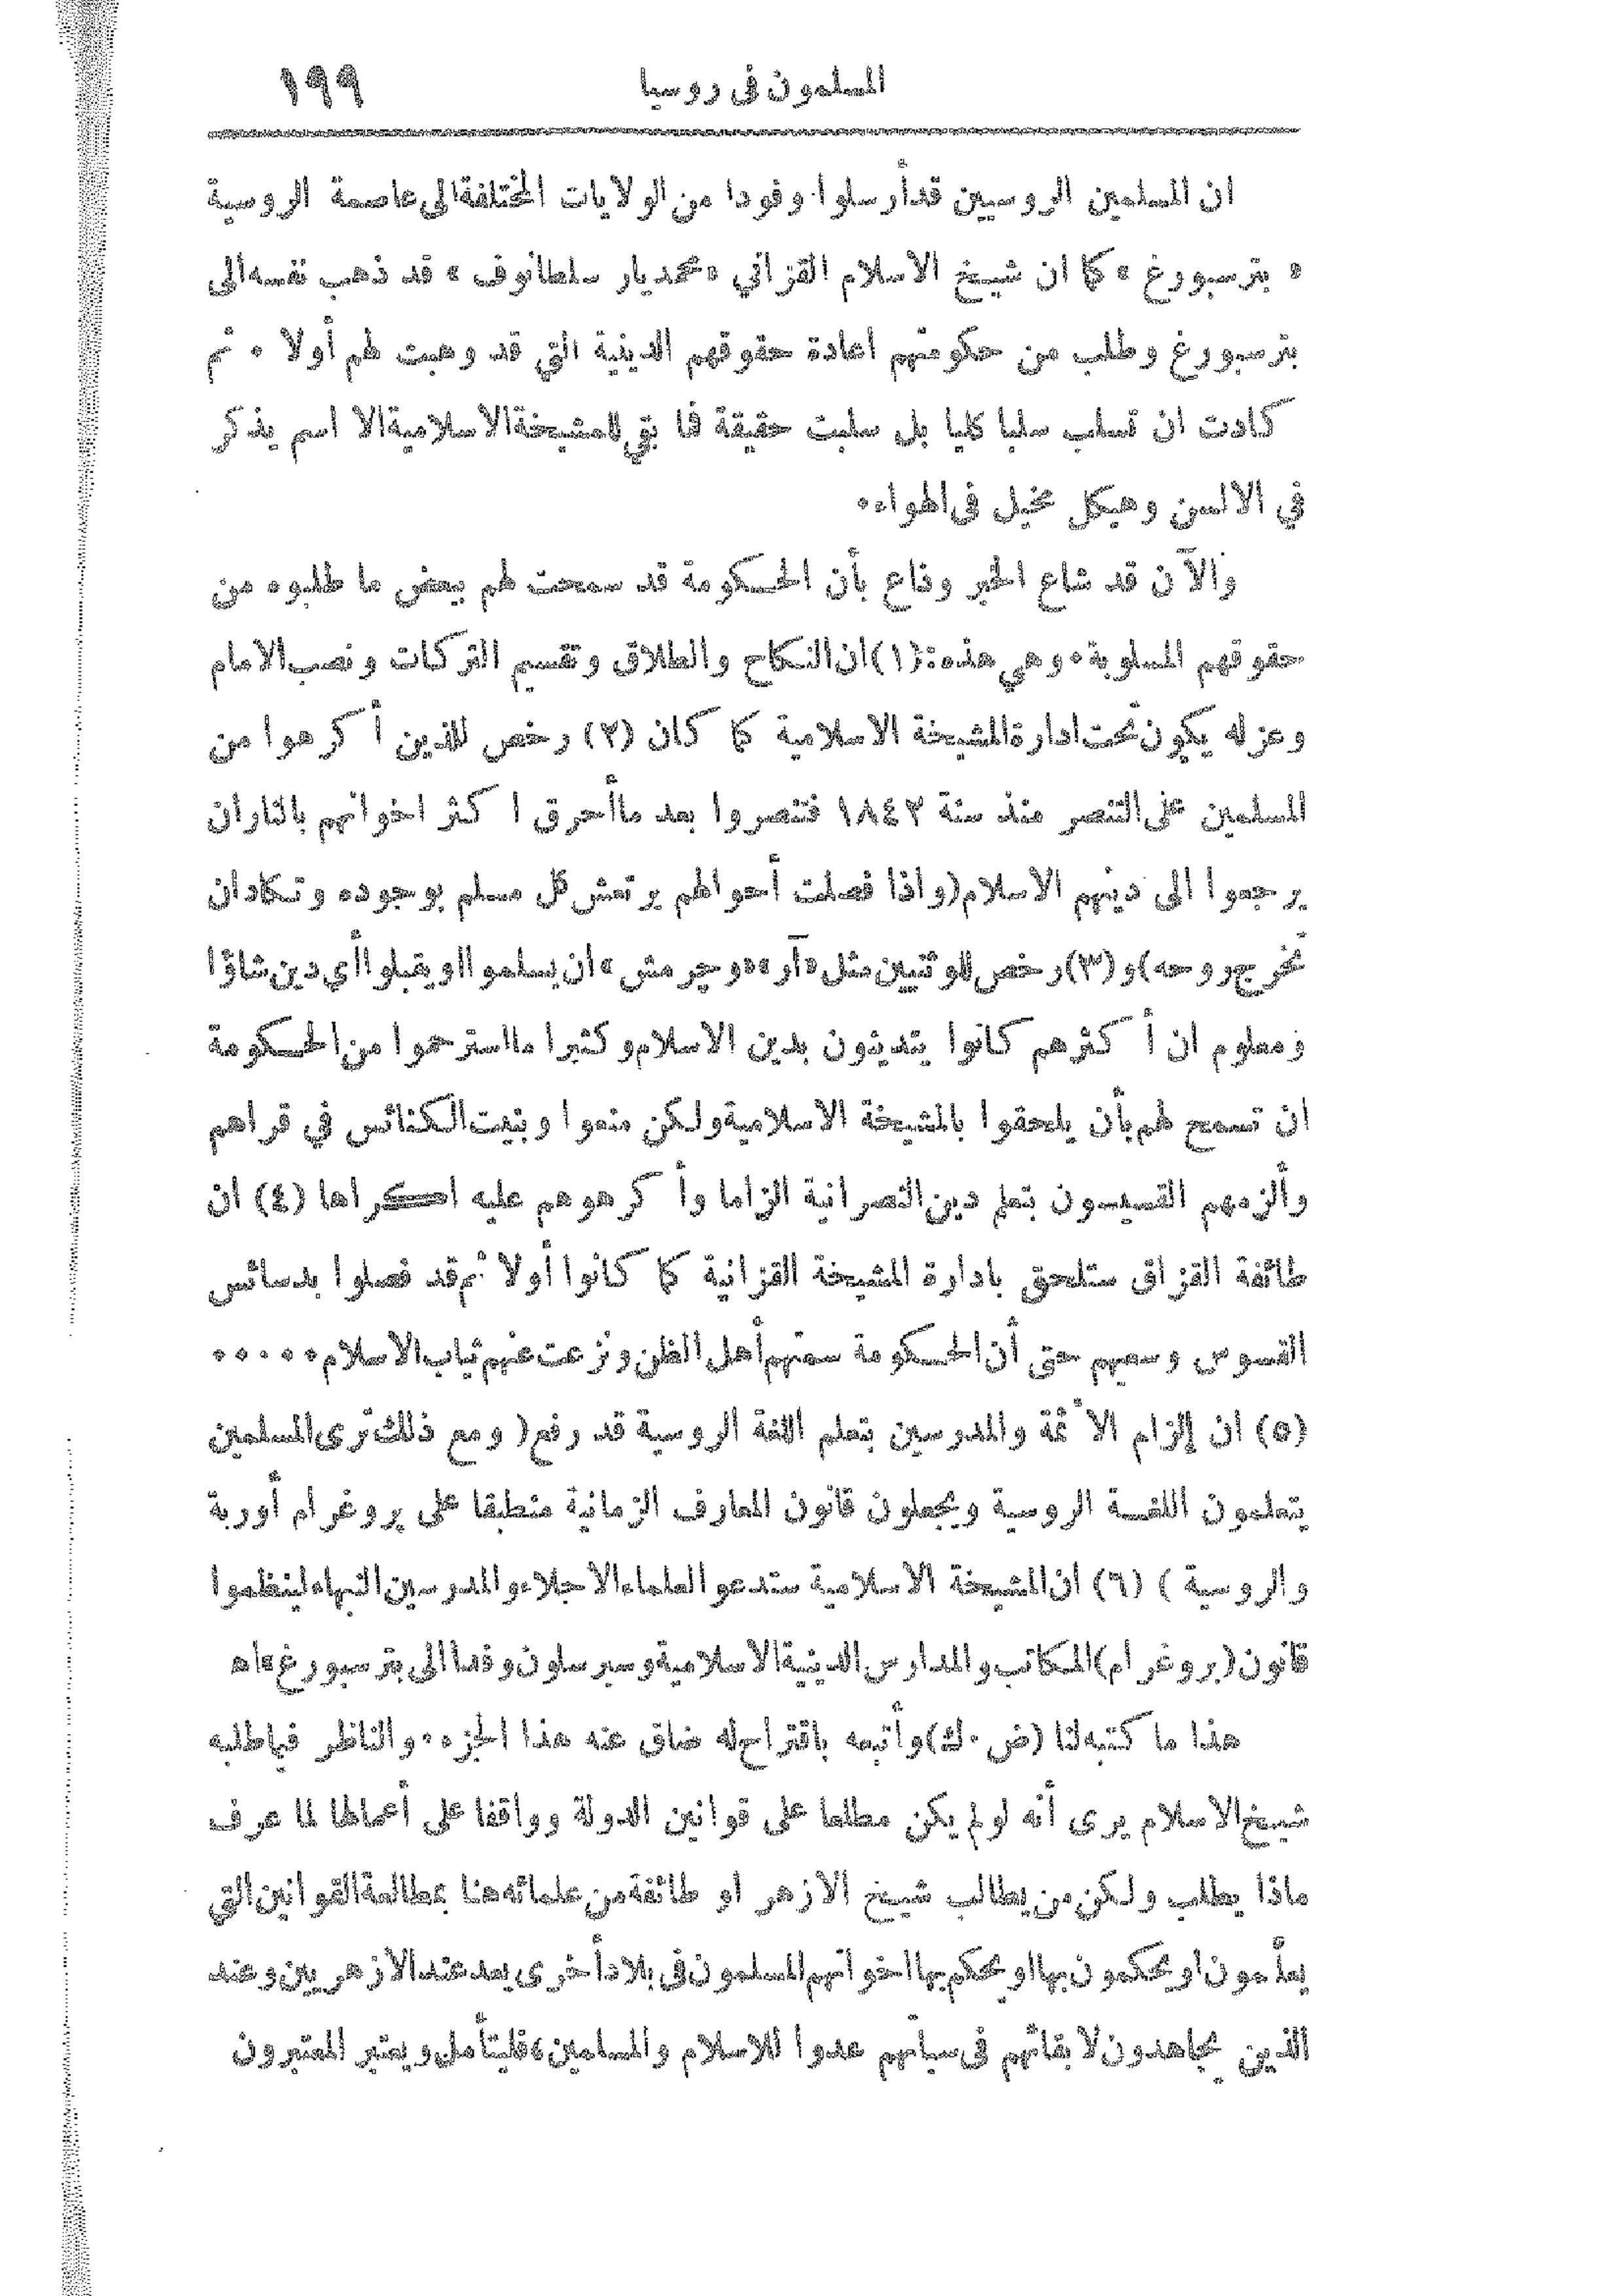 المسلمون فى روسيا ١٩٩
ان المسلمين الروسيين قد أرسلوا وفودا من الولايات المختلفة الى عاصمة الروسية
« بترسبورغ » كما ان شيخ الاسلام القزاني «محمديار سلطانوف » قد ذهب نفسه الى
بترسبورغ وطلب من حكومتهم اعادة حقوقهم الدينية التي قد وهبت لهم أولا ٠ ثم
كادت ان تسلب سلبا كليا بل سلبت حقيقة فما بقي للمشيخة الاسلامية الا اسم يذكر
في الالسن وهيكل مخيل فى الهواء٠
والآن قد شاع الخبر وذاع بأن الحكومة قد سمحت لهم ببعض ما طلبوه من
حقوقهم المسلوبة٠ وهي هذه : (١) ان النكاح والطلاق وتقسيم التركات ونصب الامام
وعزله يكون تحت ادارة المشيخة الاسلامية كما كان (٢) رخص للذين أكرهوا من
المسلمين على التنصر منذ سنة ١٨٤٣ فتنصروا بعد ما أحرق اكثر اخوانهم بالنار ان
يرجعوا الى دينهم الاسلام (واذا فصلت أحوالهم يرتعش كل مسلم بوجوده وتكاد ان
تخرج روحه) و (٣) رخص للوثنيين مثل «آر» «وچرمش» ان يسلموا او يقبلوا أي دين شاؤا
ومعلوم ان أكثرهم كانوا يتدينون بدين الاسلام وكثيرا ما استرحموا من الحكومة
ان تسمح لهم بأن يلحقوا بالمشيخة الاسلامية ولكن منعوا وبنيت الكنائس في قراهم
وألزمهم القسيسون بتعلم دين النصرانية الزاما وأكرهوهم عليه اكراها (٤) ان
طائفة القزاق ستلحق بادارة المشيخة القزانية كما كانوا أولا ثم قد فصلوا بدسائس
القسوس وسعيهم حتى أن الحكومة سمتهم أهل الظن ونزعت عنهم ثياب الاسلام٠٠٠٠٠
(٥) ان إلزام الأئمة والمدرسين بتعلم اللغة الروسية قد رفع ( ومع ذلك ترى المسلمين
يتعلمون اللغـة الروسية ويجعلون قانون المعارف الزمانية منطبقا على پروغرام أوربة
والروسية ) (٦) ان المشيخة الاسلامية ستدعو العلماء الاجلاء والمدرسين النبهاء لينظموا
قانون (بروغرام) المكاتب والمدارس الدينية الاسلامية وسيرسلون وفدا الى بترسبورغ» اهـ
هذا ما كتبه لنا (ض٠ك) وأتبعه باقتراح له ضاق عنه هذا الجزء٠ والناظر فيما طلبه
شيخ الاسلام يرى أنه لو لم يكن مطلعا على قوانين الدولة وواقفا على أعمالها لما عرف
ماذا يطلب ولكن من يطالب شيخ الازهر او طائفة من علمائه هنا بمطالعة القوانين التي
يعلمون او يحكمون بها او يحكم بها اخوانهم المسلمون فى بلاد أخرى يعد عند الازهريين وعند
الذين يجاهدون لابقائهم فى سباتهم عدوا للاسلام والمسلمين، فليتأمل ويعتبر المعتبرون